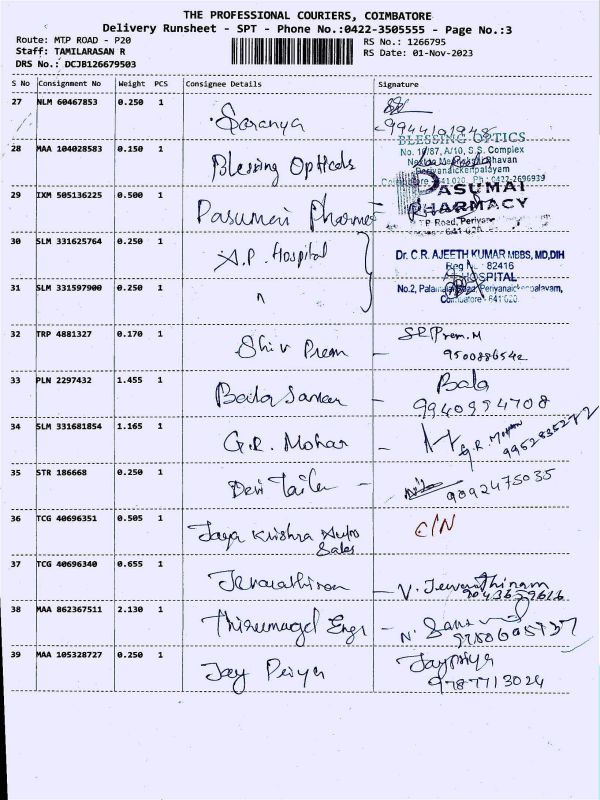 THE PROFESSIONAL COURIERS, COIMBATORE
Delivery Runsheet - SPT - Phone No.:0422-3505555 - Page No.:3
Route: MTP ROAD - P20
Staff: TAMILARASAN R
DRS No.: DCJB126679503
RS No.: 1266795
RS Date: 01-Nov-2023
S No Consignment No Weight PCS Consignee Details Signature
27 NLM 60467853 0.250 1 Saranya
9944101948
28 MAA 104028583 0.150 1 Blessing Opticals
BLESSING OPTICS
No. 10/87, A/10, S.S. Complex
Periyanaickenpalayam
641 020. Ph : 0422-2696939
29 IXM 505136225 0.500 1 Pasumai Pharma
PASUMAI
PHARMACY
Road, Periya
641 020
30 SLM 331625764 0.250 1 A.P. Hospital
Dr. C.R. AJEETH KUMAR MBBS, MD,DIH
Reg No. 82416
HOSPITAL
31 SLM 331597900 0.250 1 "
No.2, Palamalai Road, Periyanaickenpalayam,
Coimbatore - 641 020
32 TRP 4881327 0.170 1 Shiv Prem -
Prem.M
33 PLN 2297432 1.455 1 Baila Sankar - Bala
9940994708
34 SLM 331681854 1.165 1 G.R. Mohan - G.R. Mohan
9952835272
35 STR 186668 0.250 1 Devi Tailor -
9092475035
36 TCG 40696351 0.505 1 Jaya Krishna Auto
Sales
C/N
37 TCG 40696340 0.655 1 Jevarathinam - V. Jevarathinam
9043659616
38 MAA 862367511 2.130 1 Thirumagal Engr -
39 MAA 105328727 0.250 1 Jay Periya
Jaypriya
9787713024